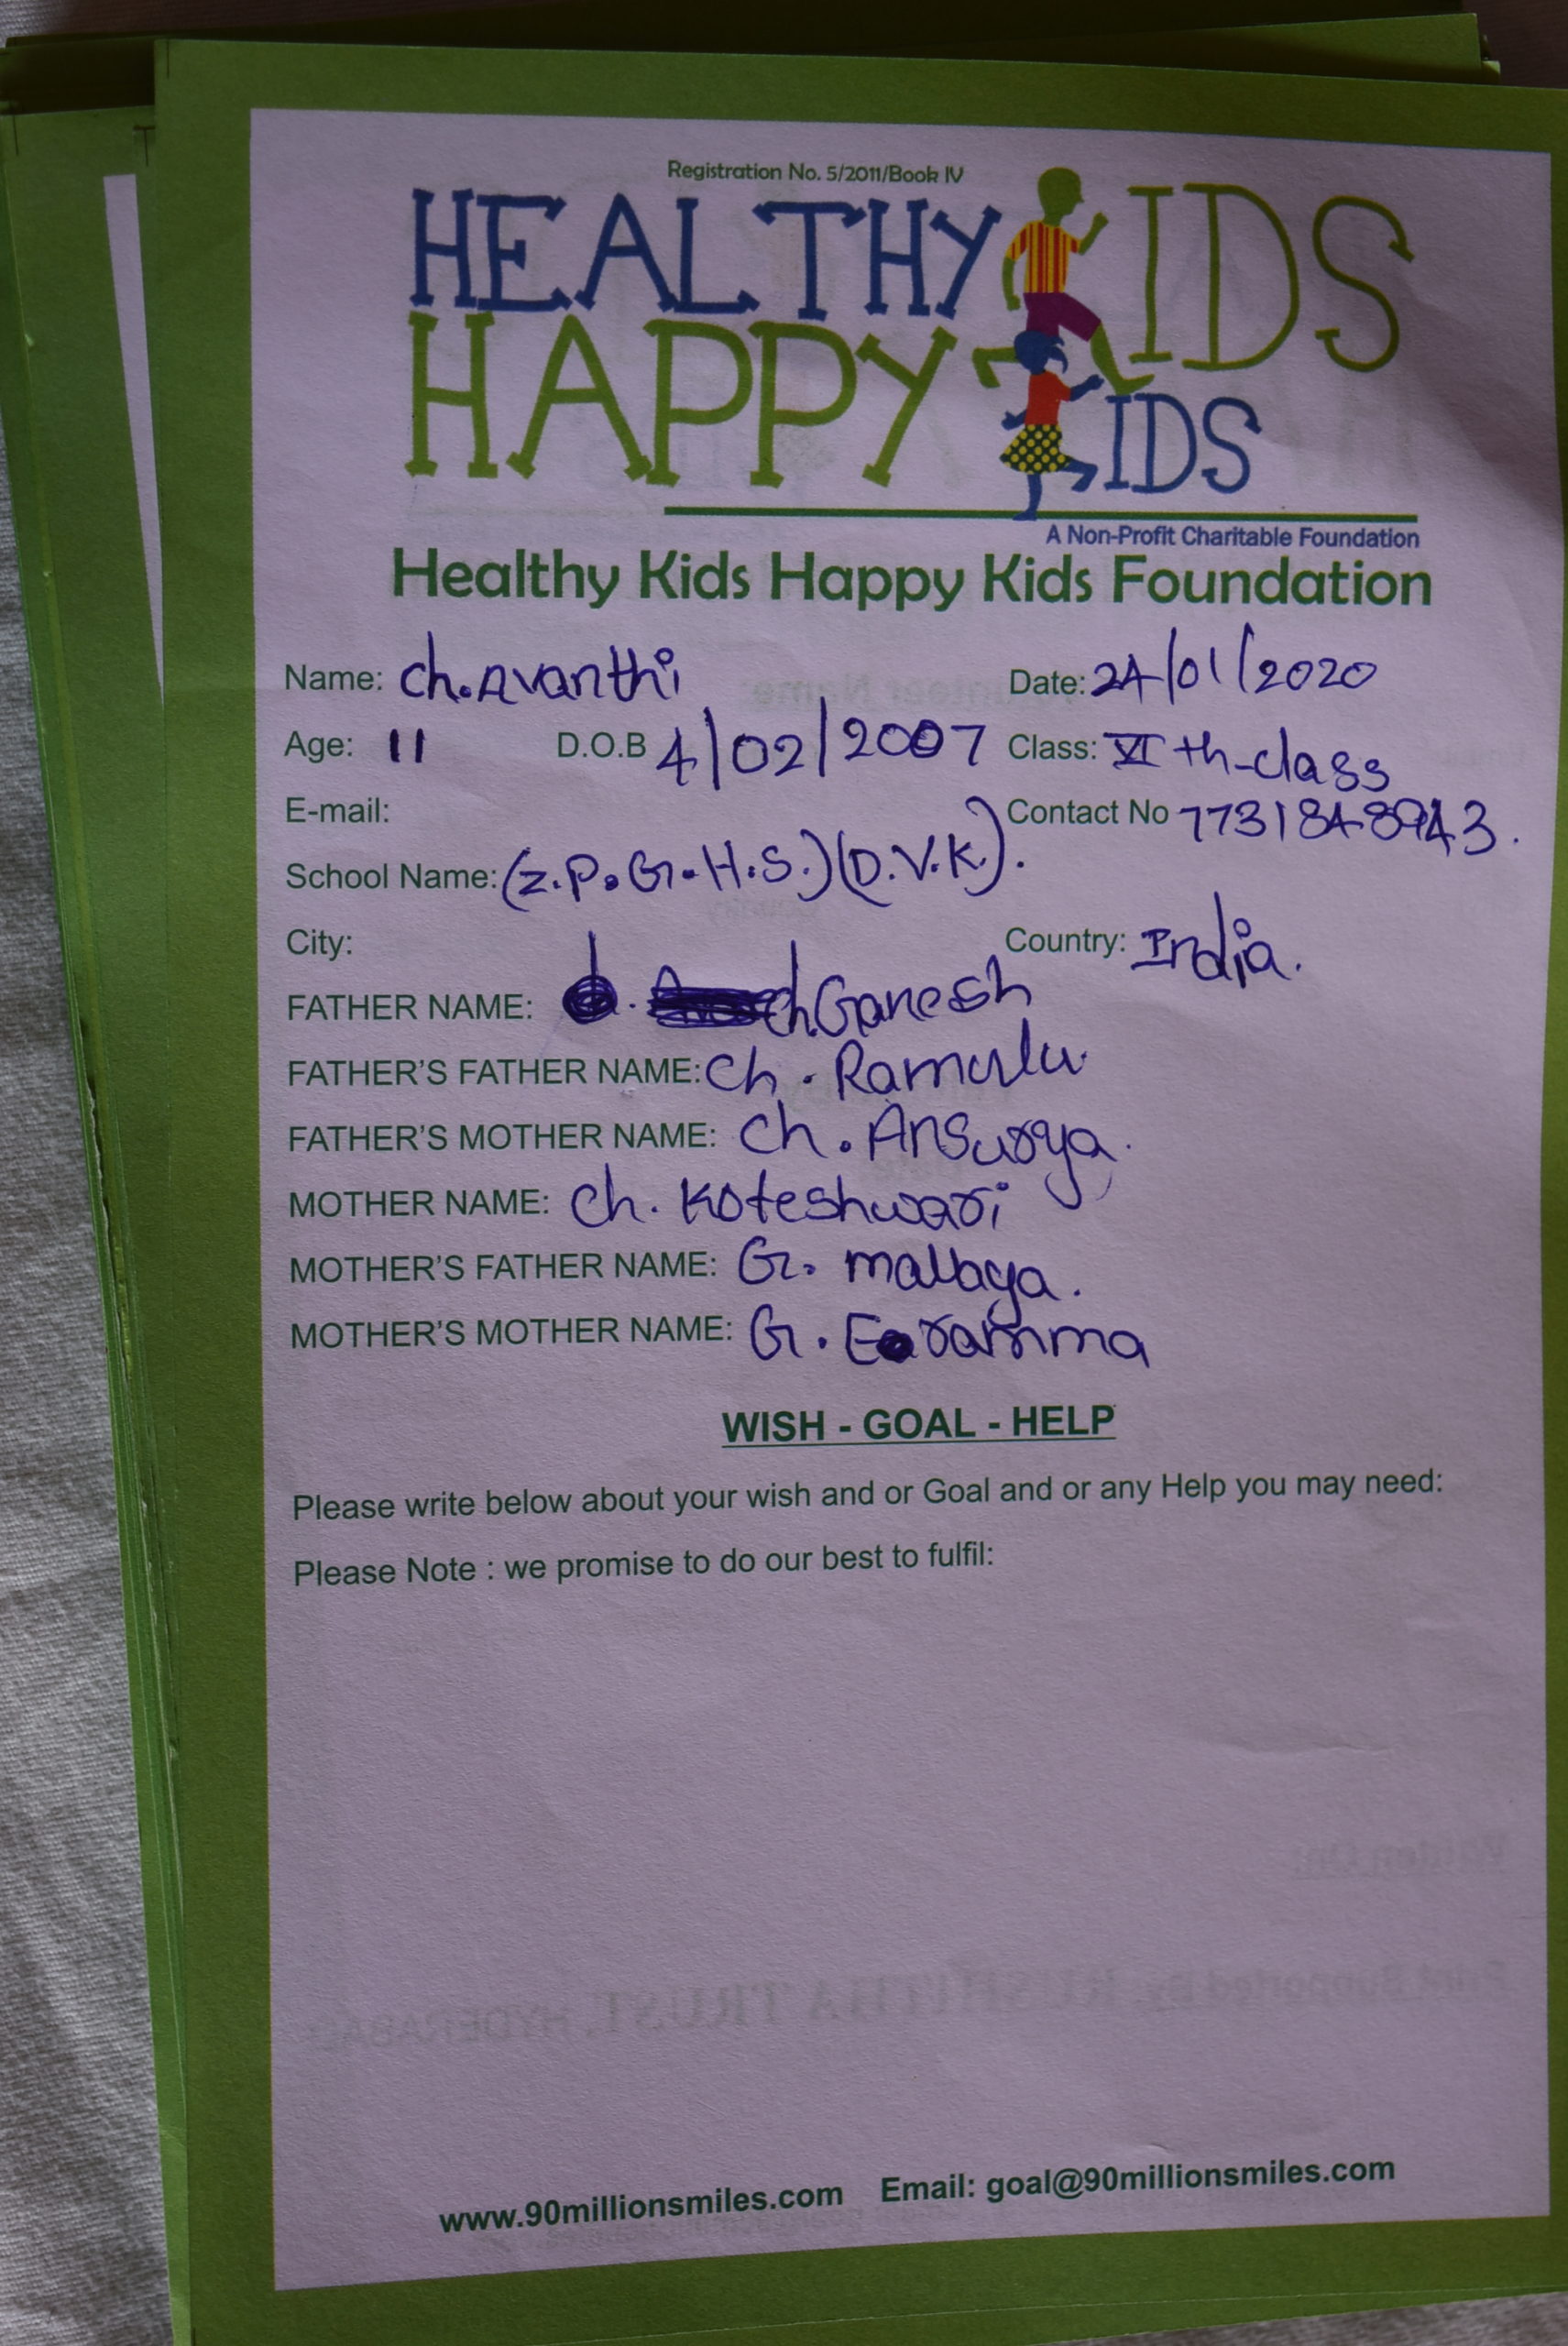 Registration No. 5/2011/Book IV
HEALTHY KIDS
HAPPY KIDS
A Non-Profit Charitable Foundation
Healthy Kids Happy Kids Foundation
Name: Ch. Avanthi Date: 24/01/2020
Age: 11 D.O.B 4/02/2007 Class: VI th-class
E-mail: Contact No 7731848943.
School Name: (Z.P.G.H.S.)(D.V.K).
City: Country: India.
FATHER NAME: ch Ganesh
FATHER'S FATHER NAME: Ch. Ramulu
FATHER'S MOTHER NAME: Ch. Ansurya.
MOTHER NAME: Ch. Koteshwari
MOTHER'S FATHER NAME: G. mallaya.
MOTHER'S MOTHER NAME: G. Eramma
WISH - GOAL - HELP
Please write below about your wish and or Goal and or any Help you may need:
Please Note : we promise to do our best to fulfil:
www.90millionsmiles.com Email: goal@90millionsmiles.com